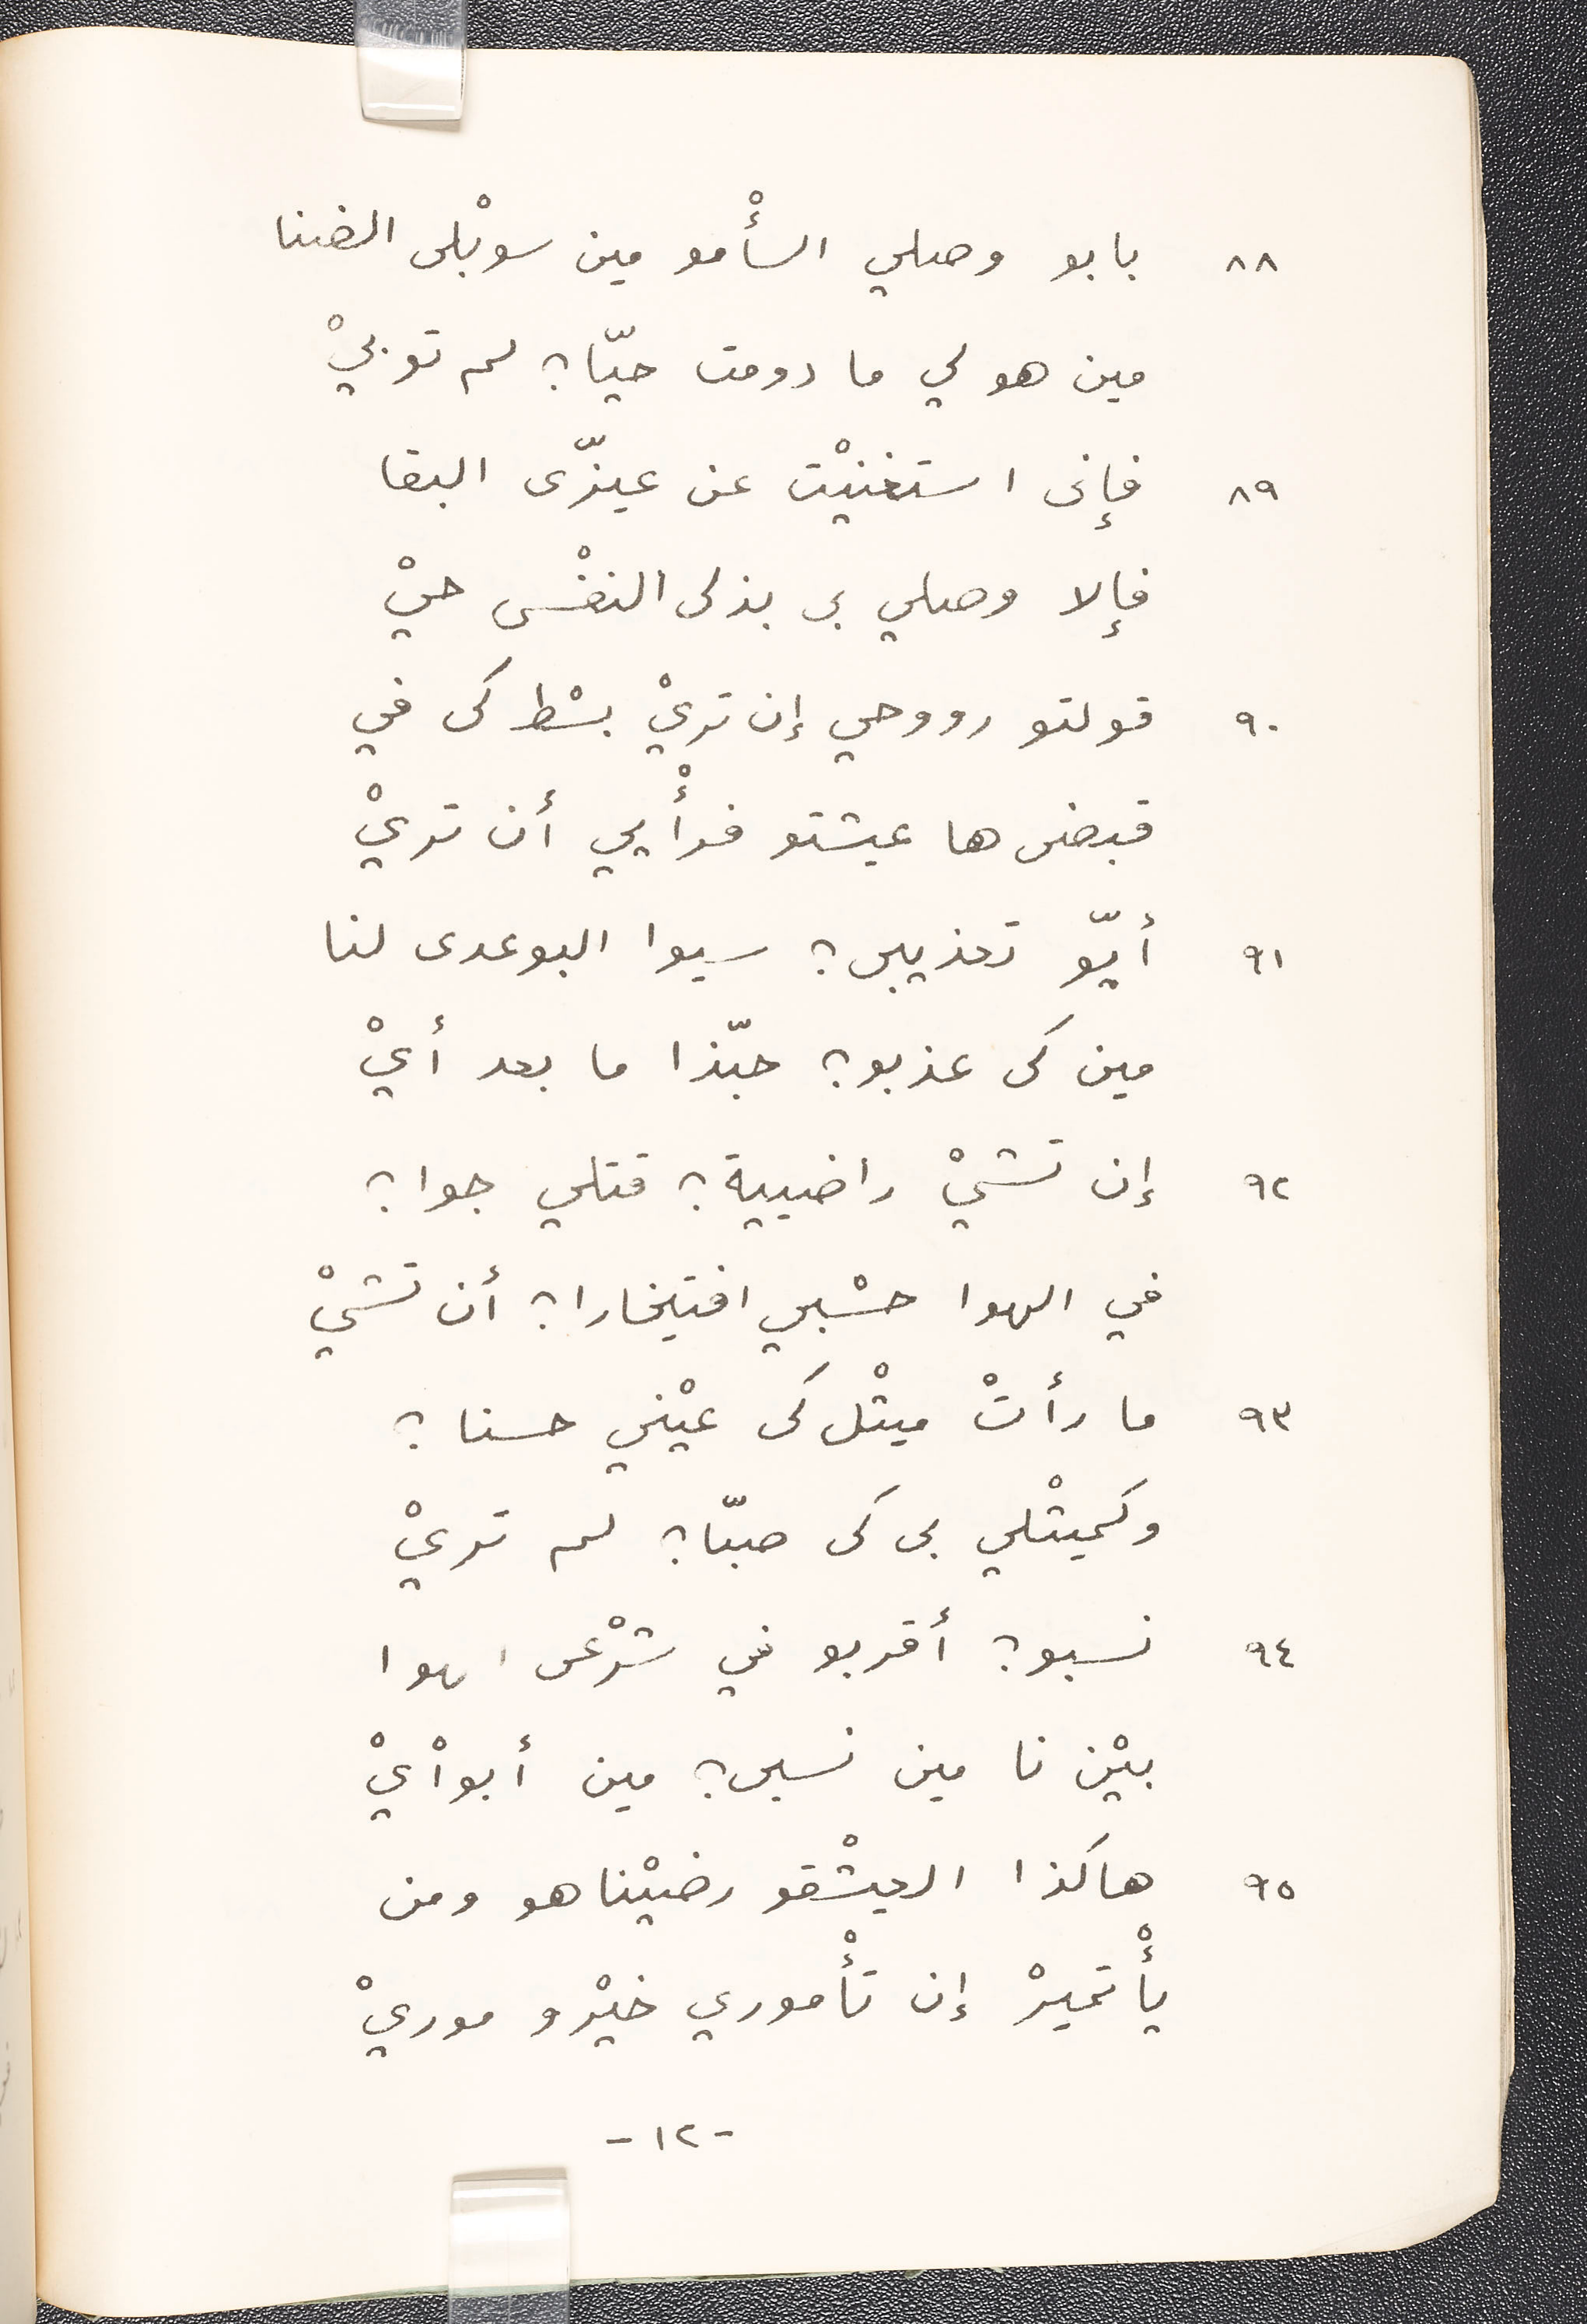 ٨٨ بابو وصلي السأْمو مين سوبْلى الضنا
مين هو لي ما دومت حيّا؟ لم توبيْ
٨٩ فإنى استغنيْت عن عيزّى البقا
فإلا وصلي بى بذلى النفْسى حيْ
٩٠ قولتو رووحي إن تريْ بسْط كى في
قبضى ها عيشتو فرأْيي أن تريْ
٩١ أيّو تعذيبى؟ سيوا البوعدى لنا
مين كى عذبو؟ حبّذا ما بعد أيْ
٩٢ إن تشيْ راضيية؟ قتلي جوا؟
في الهوا حسْبي افتيخارا؟ أن تشيْ
٩٣ ما رأتْ ميثْل كى عيْني حسنا؟
وكميثْلي بى كى صبّا؟ لم تريْ
٩٤ نسبو؟ أقربو في شرْعى الهوا
بيْن نا مين نسبى؟ مين أبواْيْ
٩٥ هاكذا العيشْقو رضيْناهو ومن
يأْتميرْ إن تأْموري خيْرو موريْ
-١٢-